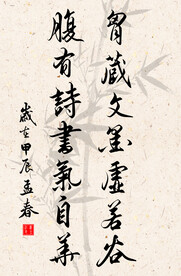 胷藏文墨虛若谷
腹有詩書氣自華
歲在甲辰孟春